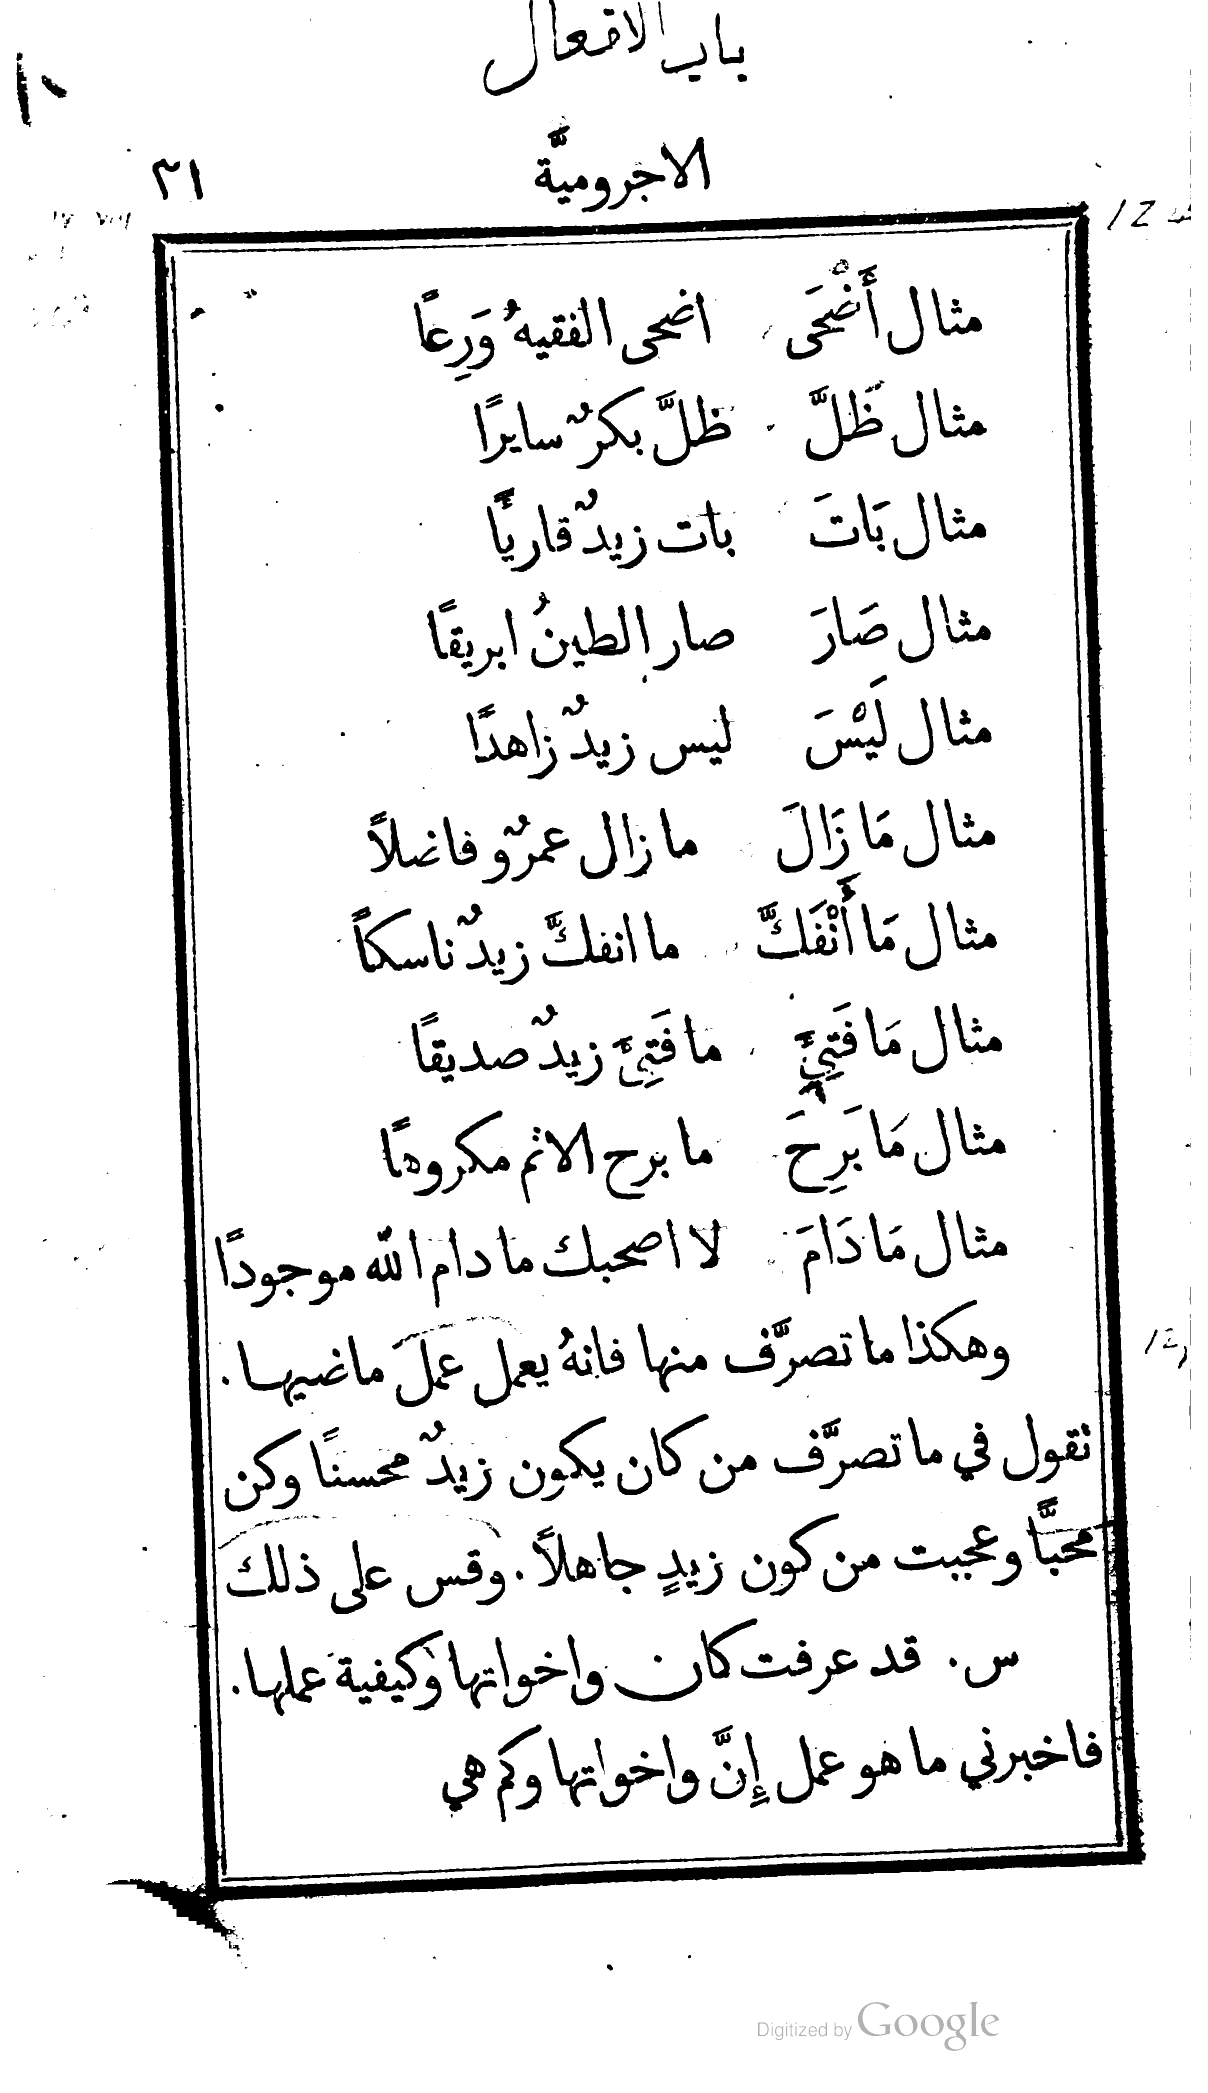 باب الافعال
الاجروميَّة ٣١
مثال أَضْحَى اضحى الفقيهُ وَرِعاً
مثال ظَلَّ ظلَّ بكرٌ سايرًا
مثال بَاتَ بات زيدٌ قاريًا
مثال صَارَ صار الطينُ ابريقًا
مثال لَيْسَ ليس زيدٌ زاهدًا
مثال مَا زَالَ ما زال عمرٌو فاضلاً
مثال مَا أَنْفَكَّ ما انفكَّ زيدٌ ناسكاً
مثال مَا فَتِئَ ما فَتِئَ زيدٌ صديقًا
مثال مَا بَرِحَ ما برح الاثم مكروهًا
مثال مَا دَامَ لا اصحبك ما دام الله موجودًا
وهكذا ما تصرَّف منها فانهُ يعمل عملَ ماضيها .
نقول في ما تصرَّف من كان يكون زيدٌ محسنًا وكن
محبًّا وعجبت من كون زيدٍ جاهلاً . وقس على ذلك
س . قد عرفت كان واخواتها وكيفية عملها .
فاخبرني ما هو عمل إِنَّ واخواتها وكم هي
Digitized by Google